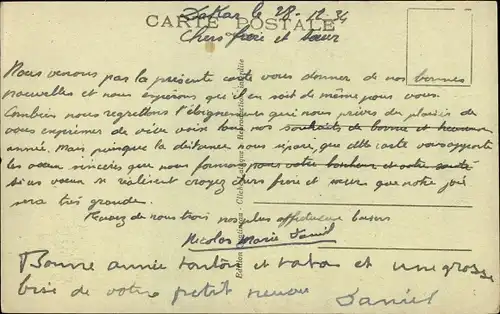 CARTE POSTALE
Dakar le 28-12-34
Chers frère et sœur
Nous venons par la présente carte vous donner de nos bonnes
nouvelles et nous espérons qu'il en soit de même pour vous.
Combien nous regrettons l'éloignement qui nous prive du plaisir de
vous exprimer de vive voix tous nos souhaits de bonne et heureuse
année. Mais puisque la distance nous sépare, que cette carte vous apporte
les vœux sincères que nous formons pour votre bonheur et votre santé
si ces vœux se réalisent croyez chers frère et sœur que notre joie
sera très grande.
Recevez de nous trois nos plus affectueux baisers
Nicolas Marie Daniel
Bonne année tonton et tata et une grosse
bise de votre petit neveu Daniel